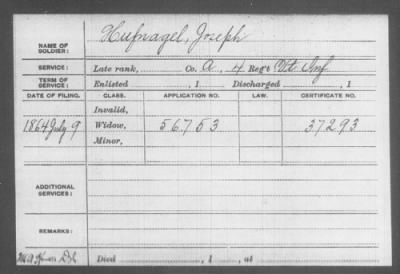 NAME OF SOLDIER: Hufnagel, Joseph
SERVICE: Late rank, Co. A, 4 Reg't Vt. Inf
TERM OF SERVICE: Enlisted , 1 Discharged , 1
DATE OF FILING. CLASS. APPLICATION NO. LAW. CERTIFICATE NO.
Invalid,
1864 July 9 Widow, 56753 37293
Minor,
ADDITIONAL SERVICES:
REMARKS:
Died , 1 , at